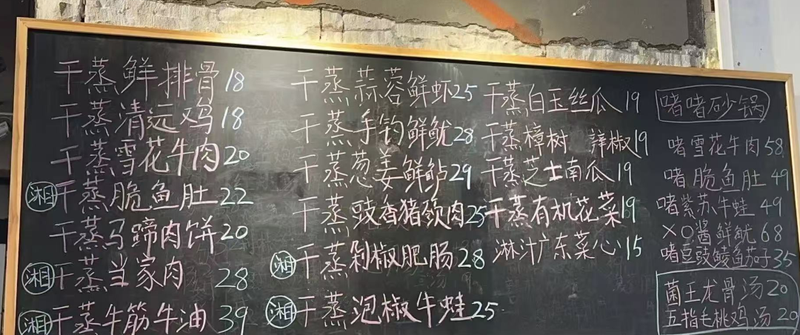 干蒸鲜排骨18
干蒸清远鸡18
干蒸雪花牛肉20
湘 干蒸脆鱼肚22
干蒸马蹄肉饼20
湘 干蒸当家肉 28
湘 干蒸牛筋牛油 39
干蒸蒜蓉鲜虾25
干蒸手钓鲜鱿28
干蒸葱姜鲜鲈29
干蒸豉香猪颈肉25
湘 干蒸剁椒肥肠28
湘 干蒸泡椒牛蛙25
干蒸白玉丝瓜19
干蒸樟树 辣椒19
干蒸芝士南瓜19
干蒸有机花菜19
淋汁广东菜心15
啫啫砂锅
啫雪花牛肉58
啫脆鱼肚49
啫紫苏牛蛙49
XO酱鲜鱿68
啫豆豉鲮鱼茄子35
菌王龙骨汤20
五指毛桃鸡汤20